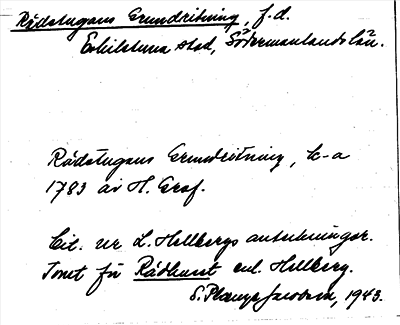 Rådstugans Grundritning, f.d.
Eskilstuna stad, Södermanlands län.
Rådstugans Grundritning, k-a
1783 av H. Graf.
Cit. ur L. Hellbergs anteckningar.
för Rådhuset enl. Hellberg.
S. 1943.